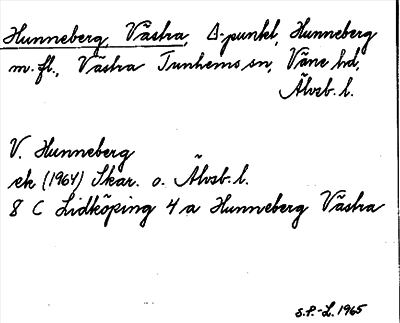 Hunneberg, Västra, Δ-punkt, Hunneberg
m.fl., Västra Tunhems sn, Väne hd,
Älvsb. l.
V. Hunneberg
ek (1964) Skar. o. Älvsb. l.
8 C Lidköping 4 a Hunneberg Västra
S.F.-L. 1965